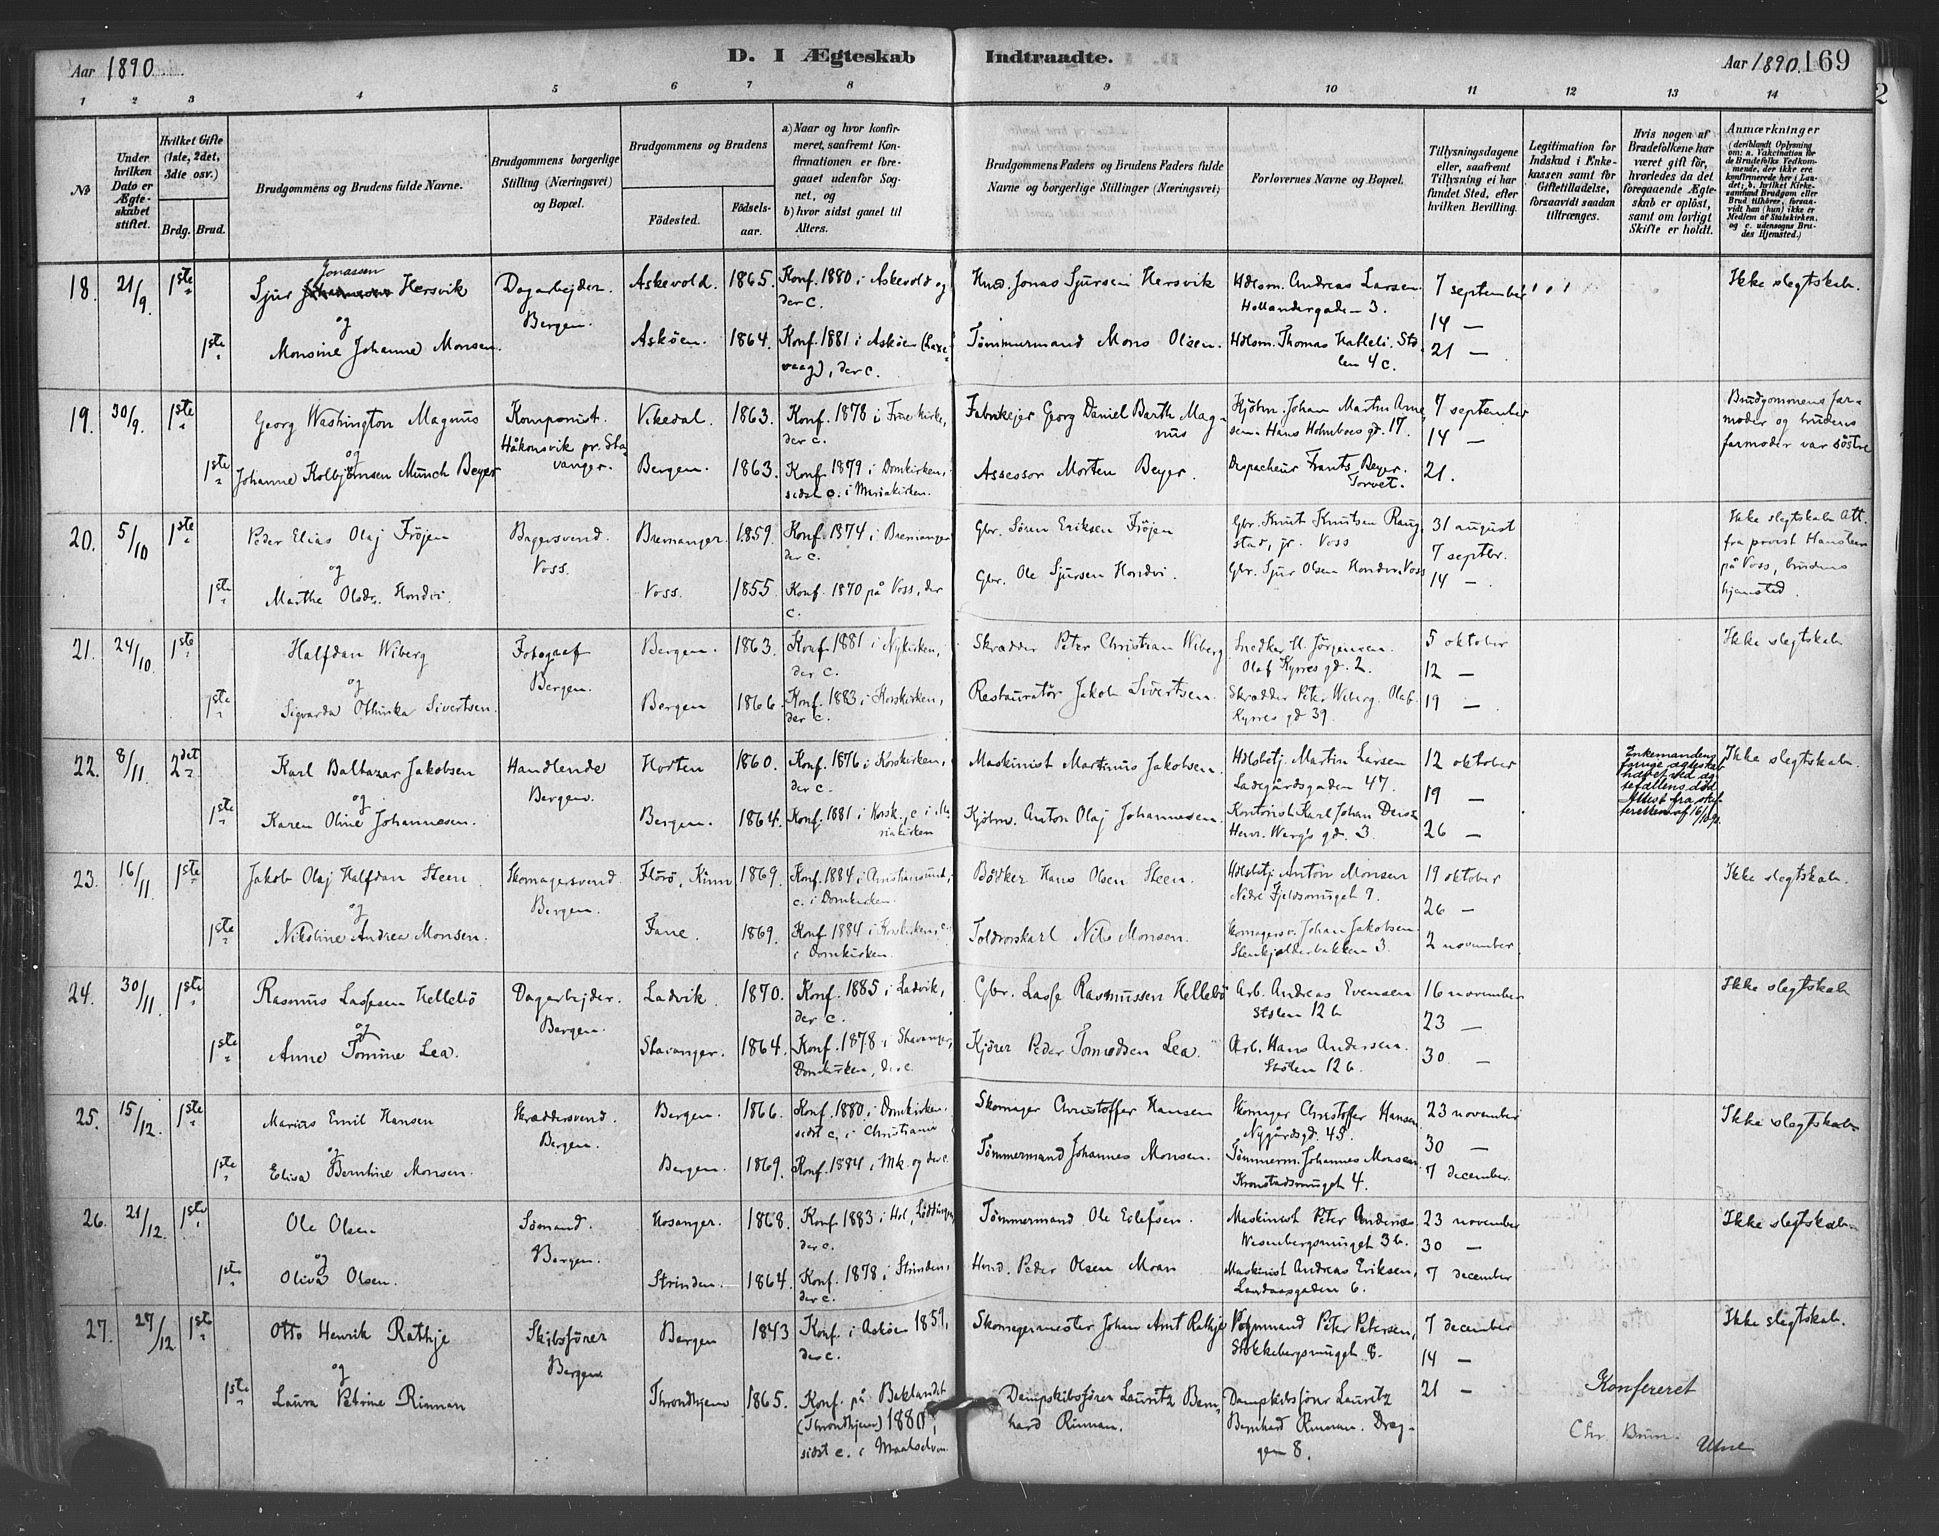 Aar 1890.
D. I Ægteskab Indtraadte.
Aar 1890. 169
1 2 3 4 5 6 7 8 9 10 11 12 13 14
No
Under hvilken Dato er Ægteskabet stiftet.
Hvilket Gifte (1ste, 2det, 3die osv.)
Brdg. Brud.
Brudgommens og Brudens fulde Navne.
Brudgommens borgerlige Stilling (Næringsvei) og Bopæl.
Brudgommens og Brudens
Fødested. Fødselsaar.
a) Naar og hvor konfirmeret, saafremt Konfirmationen er foregaaet udenfor Sognet, og
b) hvor sidst ganet til Alters.
Brudgommens Faders og Brudens Faders fulde Navne og borgerlige Stillinger (Næringsvei)
Forlovernes Navne og Bopæl.
Tillysningsdagene eller, saafremt Tillysning ei har fundet Sted, efter hvilken Bevilling.
Legitimation for Indskud i Enkekassen samt for Giftetilladelse, forsaavidt saadan tiltrænges.
Hvis nogen af Brudefolkene har været gift før, hvorledes da det foregaaende Ægteskab er opløst, samt om lovligt Skifte er holdt.
Anmærkninger (deriblandt Oplysning om: a. Vakcination for de Brudefolks Vedkommende, der ikke ere konfirmerede her i Landet; b. hvilket Kirkesamfund Brudgom eller Brud tilhører, forsaavidt han (hun) ikke er Medlem af Statskirken, og c. udensogns Brudes Hjemsted.)
18. 21/9. 1ste Sjur Jonassen Hersvik Dagarbejder. Bergen. Askevold. 1865. Konf. 1880 i Askevold og der c. Husd. Jonas Sjursen Hersvik Hdlsm. Andreas Larsen Hollandergaden 3. 7 september 14 — 21 — Ikke slegtskab.
og
1ste Monsine Johanne Monsen. Askøen. 1864. Konf. 1881 i Askøen (Laxevaag), der c. Tømmermand Mons Olsen. Hdlsm. Thomas Stølen 4 c.
19. 30/9. 1ste Georg Washington Magnus Komponist. Håkonsvik pr. Stavanger. Vikedal. 1863. Konf. 1878 i kirke, der c. Fabrikejer Georg Daniel Barth Magnus Kjøbm. Johan Martin Arnesen. Hans Holmboes gt. 17. 7 september 14 — 21. Brudgommens farmoder og brudens farmoder var søstre
og
1ste Johanne Kolbjørnsen Munch Beyer Bergen. 1863. Konf. 1879 i Domkirken, sidst c. i Mariakirken. Assessor Morten Beyer. Dispacheur Frants Beyer. Torvet.
20. 5/10 1ste Peder Elias Olaj Frøjen Bagersvend. Voss. Bremanger. 1859. Konf. 1874 i Bremanger der c. Gbr. Søren Eriksen Frøjen Gbr. Knut Knutsen Raugstad, jr. Voss 31 august 7 septbr. 14 —. Ikke slegtskab. Att. fra provst Hanstein på Voss, brudens hjemsted.
og
1ste Marthe Olsdr. Hondvi. Voss. 1855. Konf. 1870 på Voss, der c. Gbr. Ole Sjursen Hondvi. Gbr. Sjur Olsen Hondvi. Voss
21. 24/10. 1ste Halfdan Wiberg Fotograf Bergen. Bergen. 1863. Konf. 1881 i Nykirken, der c. Skrædder Peter Christian Wiberg Snedker H. Jørgensen. Olaf Kyrres gd. 2. 5 oktober 12 — 19 — Ikke slegtskab
og
1ste Sigvarda Othinka Sivertsen. Bergen 1866. Konf. 1883 i Korskirken, der c. Restauratør Jakob Sivertsen. Skrædder Peter Wiberg. Olaf Kyrres gd 39.
22. 8/11. 2det Karl Baltazar Jakobsen Handlende Bergen. Horten 1860. Konf. 1876 i Korskirken, der c. Maskinist Martinus Jakobsen. Hdlsbetj. Martin Larsen Ladegårdsgaden 47. 12 oktober 19 — 26 — Enkemandens forrige ægteskab hævet ved ægtefællens død. Attest fra skifteretten af 16/10 90. Ikke slegtskab.
og
1ste Karen Oline Johannesen. Bergen. 1864. Konf. 1881 i Korsk., c. i Mariakirken Kjøbm. Anton Olaj Johannesen. Kontorist Karl Johan Henr. Wergs gd. 3.
23. 16/11. 1ste Jakob Olaj Halfdan Steen. Skomagersvend. Bergen. Florø, Kinn 1869. Konf. 1884 i Christiansund, c. i Domkirken. Bødker Hans Olsen Steen. Hdlsbetj. Anton Monsen Nedre Fjeldsmuget 9. 19 oktober 26 — 2 november Ikke slegtskab.
og
1ste Nikoline Andrea Monsen. Fane. 1869. Konf. 1884 i Korskirken, c. i Domkirken. Toldvorskarl Nils Monsen. Skomagersv. Johan Jakobsen. Stenkjelderbakken 3.
24. 30/11. 1ste Rasmus Lassesen Hellebø Dagarbejder. Bergen. Ladvik. 1870. Konf. 1885 i Ladvik, der c. Gbr. Lasse Rasmussen Hellebø Arb. Andreas Evensen Stølen 12 b 16 november 23 — 30 — Ikke slegtskab
og
1ste Anne Tomine Lea. Stavanger. 1864. Konf. 1878 i Stavanger, Domkirken, der c. Kjører Peder Tomødden Lea. Arb. Hans Andersen. Stølen 12 b.
25. 15/12. 1ste Marius Emil Hansen Skræddersvend. Bergen. Bergen. 1866. Konf. 1880 i Domkirken. sidst c. i Christiania Skomager Christoffer Hansen Skomager Christoffer Hansen Nygårdsgd. 45. 23 november 30 — 7 december. Ikke slegtskab
og
1ste Elisa Berntine Monsen. Bergen. 1869. Konf. 1884 i Mk. og der c. Tømmermand Johannes Monsen. Tømmerm. Johannes Monsen Kronstadsmuget 4.
26. 21/12. 1ste Ole Olsen Sømand. Bergen. Hosanger. 1868. Konf. 1883 i Hol, Lødingen, der c. Tømmermand Ole Edlefsen. Maskinist Peter Andersen Wesenbergsmuget 3 b. 23 november 30 — 7 december Ikke slegtskab
og
1ste Oliva Olsen. Strinden. 1864. Konf. 1878 i Strinden, der c. Husd. Peder Olsen Moan Maskinist Andreas Eriksen, Landaasgaden 6.
27. 27/12. 1ste Otto Henrik Rathje Skibsfører Bergen Bergen 1843 Konf. i Askøen 1859, der c. Skomagermester Johan Arnt Rathje Peter Petersen, Stokkebergsmuget 8. 7 december 14 — 21 — Ikke slegtskab.
og
1ste Laura Petrine Rinnan Throndhjem 1865. Konf. på Baklandet (Throndhjem) 1880, sidst c. i Maalselven Dampskibsfører Lauritz Bernhard Rinnan. Dampskibsfører Lauritz Bernhard Rinnan. Dræggen 8.
Konfereret
Chr. Brun.